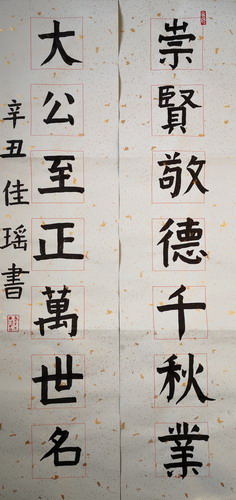 崇賢敬德千秋業
大公至正萬世名
辛丑佳瑤書